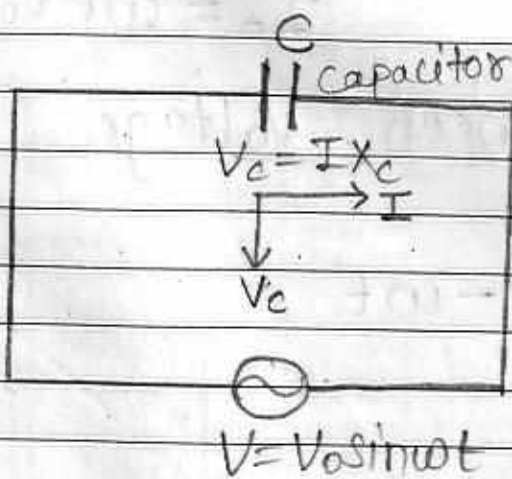 C
capacitor
V_C = I X_C
I
V_C
- wt
V = V_0 sin wt